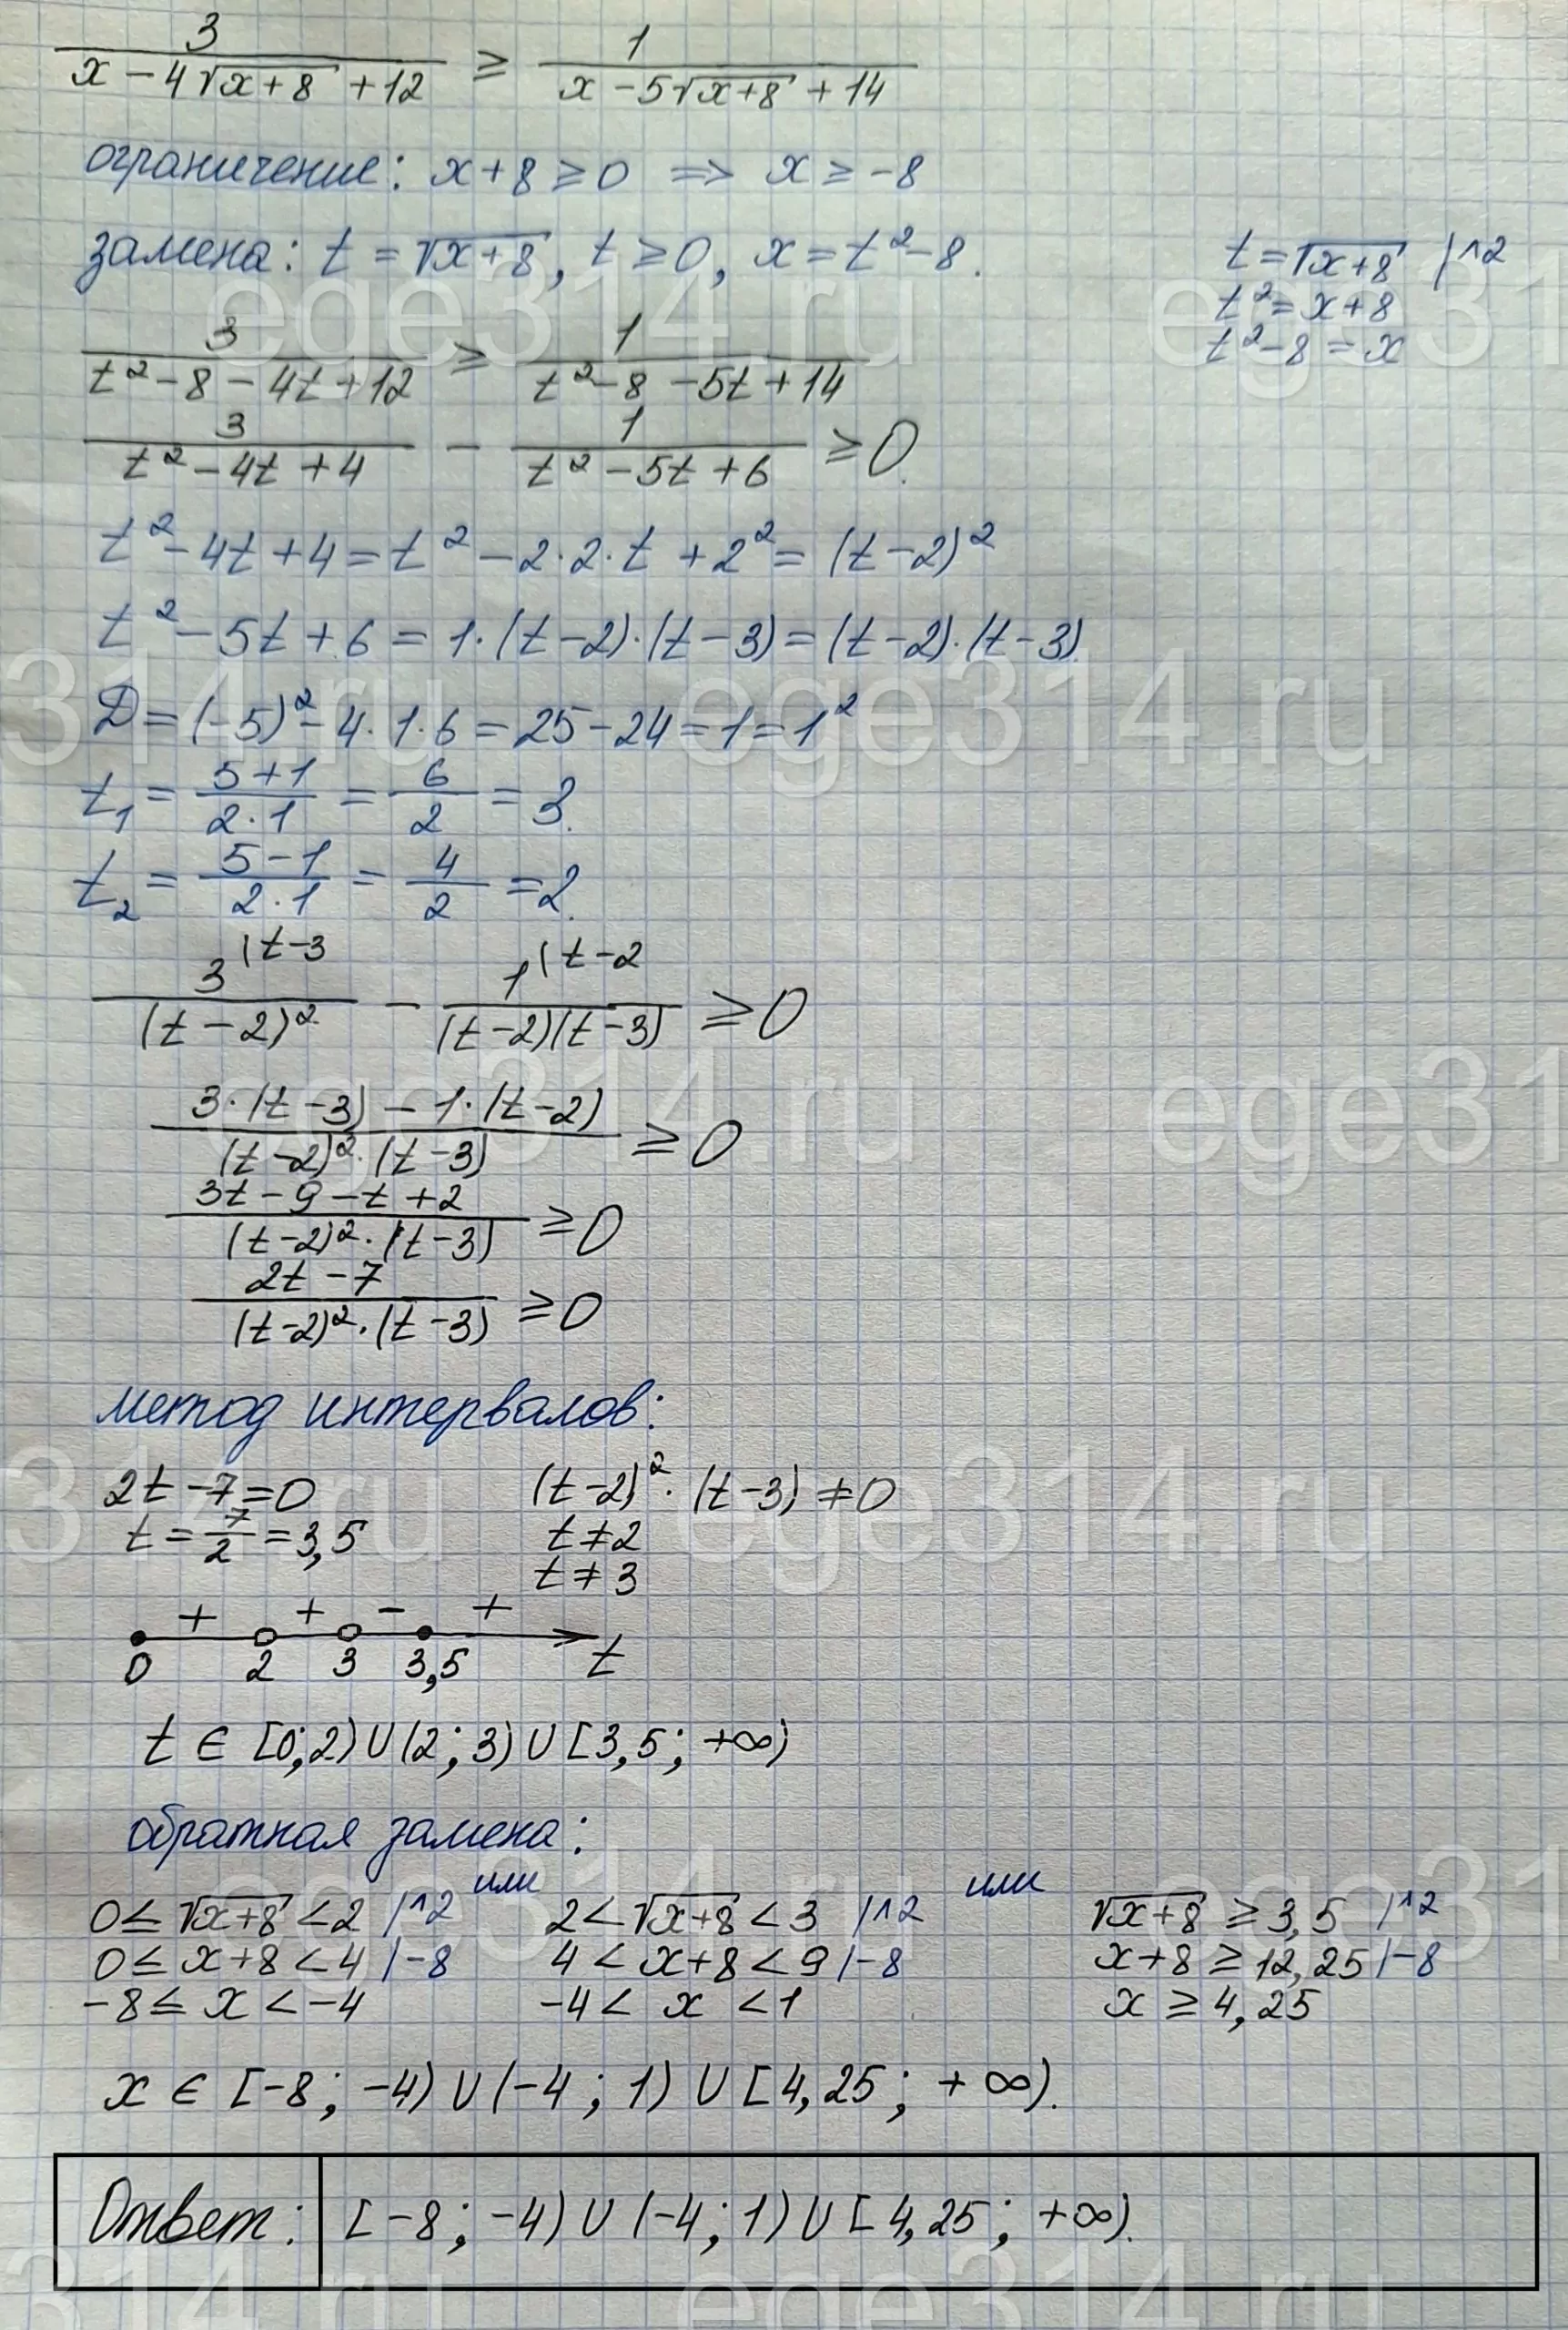 3/(x-4√(x+8)+12) ≥ 1/(x-5√(x+8)+14)
ограничение: x+8≥0 => x≥-8
замена: t=√(x+8), t≥0, x=t²-8.
t=√(x+8) |^2
t²=x+8
t²-8=x
3/(t²-8-4t+12) ≥ 1/(t²-8-5t+14)
3/(t²-4t+4) - 1/(t²-5t+6) ≥0.
t²-4t+4=t²-2·2·t+2²=(t-2)²
t²-5t+6=1·(t-2)·(t-3)=(t-2)·(t-3).
D=(-5)²-4·1·6=25-24=1=1²
t₁=(5+1)/(2·1)=6/2=3.
t₂=(5-1)/(2·1)=4/2=2.
3^(t-3/(t-2)² - 1^(t-2/((t-2)(t-3)) ≥0
(3·(t-3)-1·(t-2))/((t-2)²·(t-3)) ≥0
(3t-9-t+2)/((t-2)²·(t-3)) ≥0
(2t-7)/((t-2)²·(t-3)) ≥0
метод интервалов:
2t-7=0 (t-2)²·(t-3)≠0
t=7/2=3,5 t≠2
t≠3
+ + - +
0 2 3 3,5 t
t∈[0;2)∪(2;3)∪[3,5;+∞)
обратная замена:
0≤√(x+8)<2 |^2 или 2<√(x+8)<3 |^2 или √(x+8)≥3,5 |^2
0≤x+8<4 |-8 4<x+8<9 |-8 x+8≥12,25 |-8
-8≤x<-4 -4<x<1 x≥4,25
x∈[-8;-4)∪(-4;1)∪[4,25;+∞).
Ответ: [-8;-4)∪(-4;1)∪[4,25;+∞).
ege314.ru